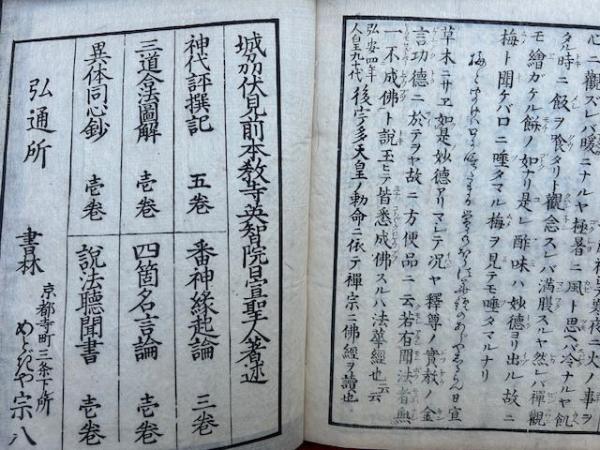 心ニ觀ズレバ暖ニナルヤ極暑ニ風ト思ヘバ冷ナルヤ飢
タル時ニ飯ヲ喰タリト觀念スレバ満腹スルヤ然レバ禪觀
モ繪ガケル餅ノ如ナリ是レ酢味ハ妙德ヨリ出ル故ニ
梅ト聞ケバロニ唾タマル梅ヲ見テモ唾タマルナリ
草木ニサヱ如是妙德アリマレテ况ヤ釋尊ノ實教ノ金
言功德ニ於テヲヤ故ニ方便品ニ云若有聞法者無
一不成佛ト説玉ヒテ皆悉成佛スルハ法華經也云云
弘安四年
人皇九十代後宇多天皇ノ勅命ニ依テ禪宗ニ佛經ヲ讀也
城刕伏見前本教寺英智院日宣聖人著述
神代評撰記 五巻
番神縁起論 三巻
三道合法圖解 壱巻
四箇名言論 壱巻
異体同心鈔 壱巻
説法聽聞書 壱巻
弘通所
書林 京都寺町三条下所
めとぎや宗八